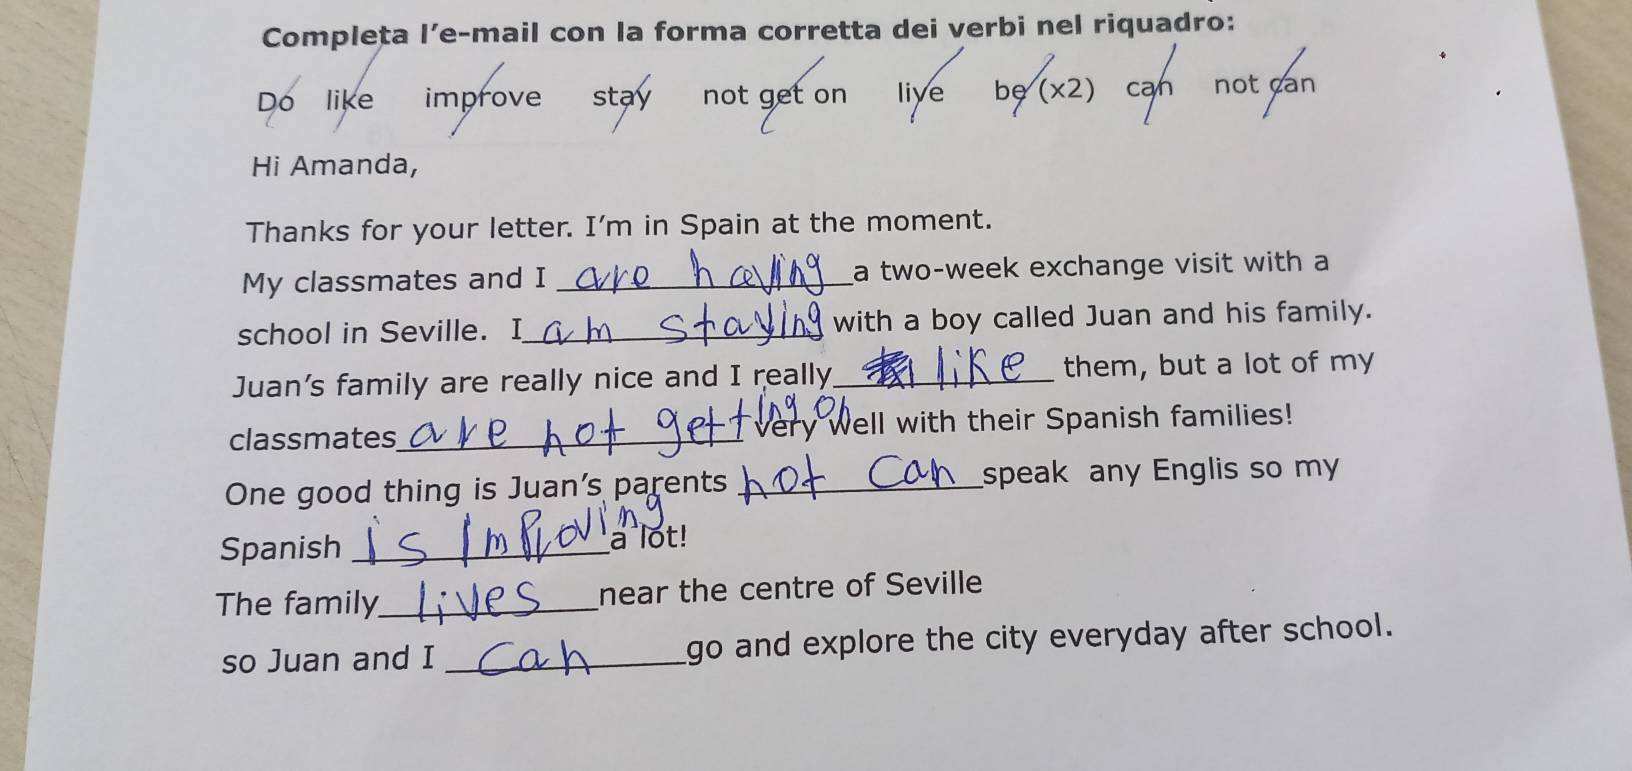 Completa l'e-mail con la forma corretta dei verbi nel riquadro:
Do like improve stay not get on live be (x2) can not can
Hi Amanda,
Thanks for your letter. I'm in Spain at the moment.
My classmates and I are having a two-week exchange visit with a
school in Seville. I am staying with a boy called Juan and his family.
Juan's family are really nice and I really like them, but a lot of my
classmates are not getting on very well with their Spanish families!
One good thing is Juan's parents not can speak any Englis so my
Spanish is improving a lot!
The family lives near the centre of Seville
so Juan and I can go and explore the city everyday after school.